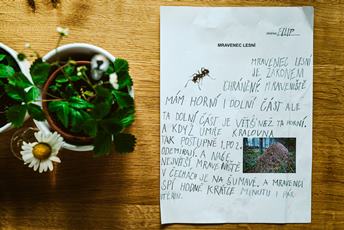 MRAVENEC LESNÍ
MRAVENEC LESNÍ
JE ZÁKONEM
CHRÁNĚNÝ. MRAVENIŠTĚ
MÁM HORNÍ I DOLNÍ ČÁST ALE
TA DOLNÍ ČÁST JE VĚTŠÍ NEŽ TA HORNÍ.
A KDYŽ UMŘE KRALOVNA
TAK POSTUPNĚ I PO
ODEMÍRAJÍ A
NEJVĚTŠÍ MRAVENIŠTĚ
V ČECHÁCH JE NA ŠUMAVĚ. A MRAVENCI
SPÍ HODNĚ KRÁTCE MINUTU I PÁR